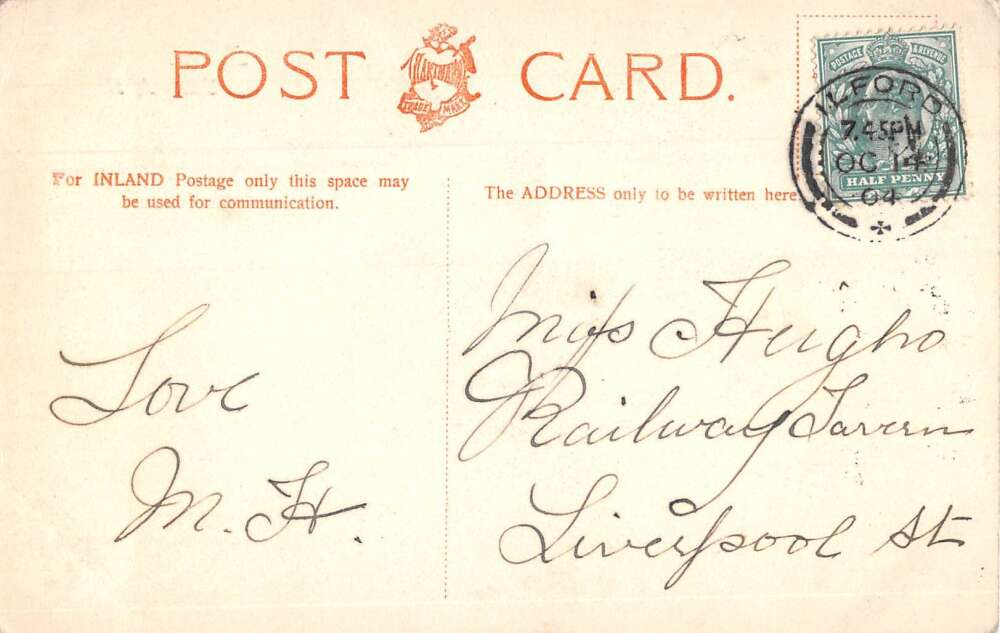 POST CARD.
HARTMANN
TRADE MARK
POSTAGE & REVENUE
HALF PENNY
ILFORD
7.45PM
OC 14
04
For INLAND Postage only this space may
be used for communication.
The ADDRESS only to be written here.
Love
M. H.
Miss Heigho
Railway Tavern
Liverpool St